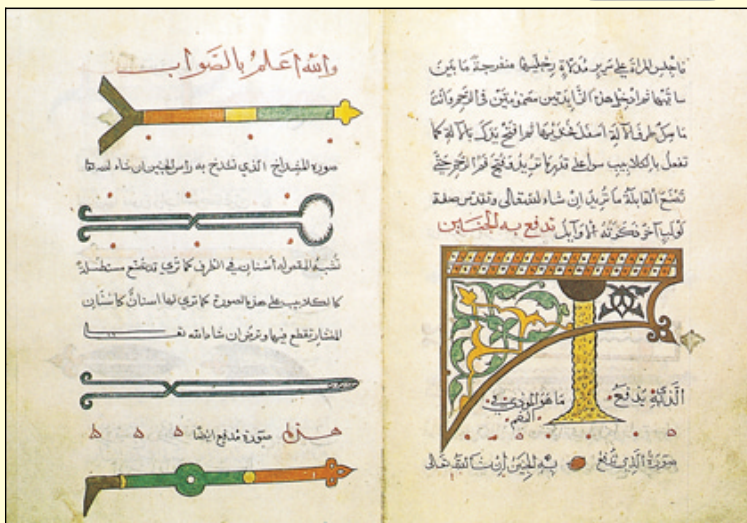 فاجلس المراة على سرير مدلاة رجليها منفرجة ما بين
ساقيها ثم ادخل هذن الزايدتين مضمومتين في الرحم وانت
ماسك طرف الآلة اسفل فخذيها ثم افتح يدك بالآلة كما
تفعل بالكلاليب سوا على قدر ما تريد فتح فم الرحم حتى
تصنع القابلة ما تريد ان شاء الله تعالى وتقدس صفة
لولب آخر ذكرته الاوايل تدفع به الجنين
الذي يدفع ما هو الموذي في
الفم
صورة الذي تدفع به الجنين ان شا الله تعالى
والله اعلم بالصواب
صورة المشداخ الذي تشدخ به راس الجنين ان شاء الله
تشبه المقص له أسنان في الطرف كما تري قد تصنع مستطيلة
كالكلاليب على هذه الصورة كما تري لها اسنان كاسنان
المنشار تقطع فيها وترض ان شاء الله تعا
هذه صورة مدفع ايضا